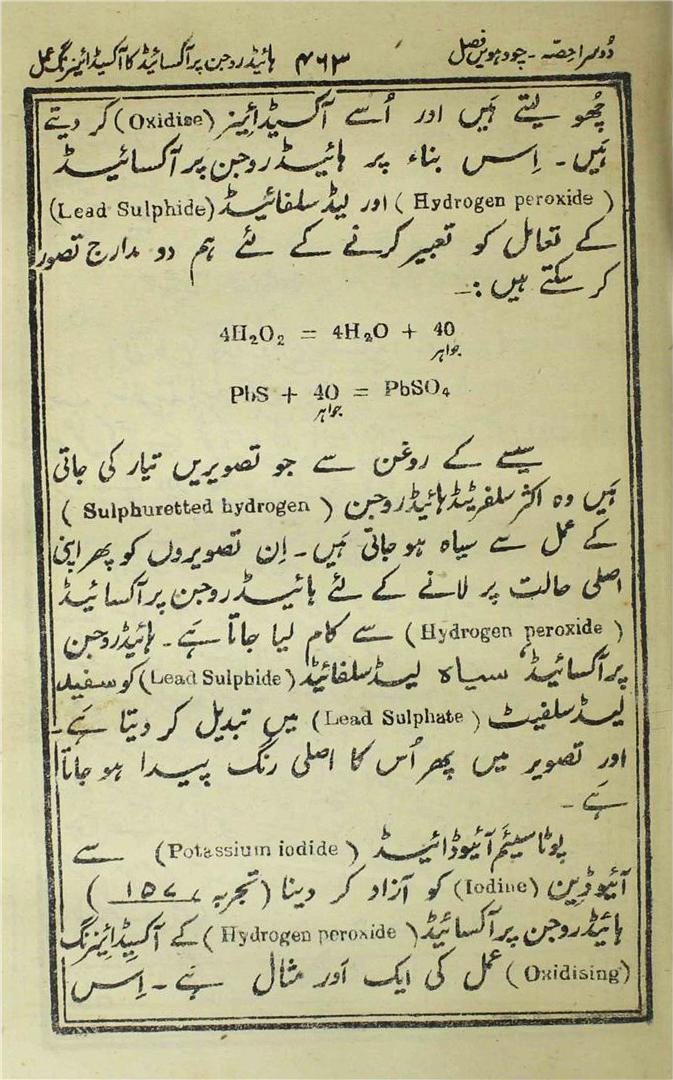 دُوسرا حِصّہ - چودھویں فصل ۴۶۳ ہائیڈروجن پر آکسائیڈ کا آکسیڈائیزنگ عمل
چُھو لیتے ہَیں اور اُسے آکسیڈائیز (Oxidise) کر دیتے
ہَیں۔ اِس بناء پر ہائیڈروجن پر آکسائیڈ
(Hydrogen peroxide) اور لیڈ سلفائیڈ (Lead Sulphide)
کے تعامل کو تعبیر کرنے کے لئے ہم دو مدارج تصور
کر سکتے ہیں :۔
4H₂O₂ = 4H₂O + 4O
جواہر
PbS + 4O = PbSO₄
جواہر
سیسے کے روغن سے جو تصویریں تیار کی جاتی
ہَیں وہ اکثر سلفریٹڈ ہائیڈروجن (Sulphuretted hydrogen)
کے عمل سے سیاہ ہو جاتی ہَیں۔ اِن تصویروں کو پھر اپنی
اصلی حالت پر لانے کے لئے ہائیڈروجن پر آکسائیڈ
(Hydrogen peroxide) سے کام لیا جاتا ہَے۔ ہائیڈروجن
پر آکسائیڈ، سیاہ لیڈ سلفائیڈ (Lead Sulphide) کو سفید
لیڈ سلفیٹ (Lead Sulphate) میں تبدیل کر دیتا ہَے۔
اور تصویر میں پھر اُس کا اصلی رنگ پیدا ہو جاتا
ہَے۔
پوٹاسیئم آئیوڈائیڈ (Potassium iodide) سے
آئیوڈین (Iodine) کو آزاد کر دینا (تجربہ ۱۵۷)
ہائیڈروجن پر آکسائیڈ (Hydrogen peroxide) کے آکسیڈائیزنگ
(Oxidising) عمل کی ایک اَور مثال ہَے۔ اِس